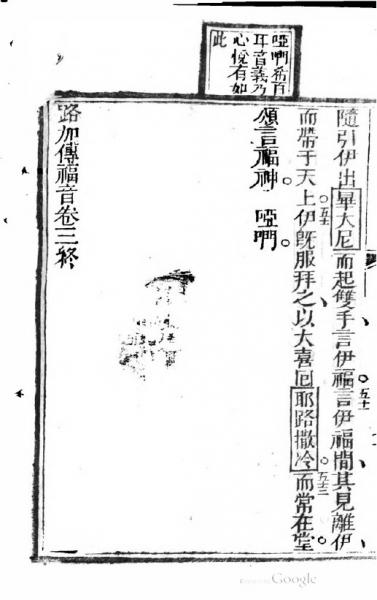 啞們希百
耳音義乃
心悅有如
此
隨引伊出畢大尼而起雙手言伊福。五十一言伊福間其見離伊
而帶于天上。五十二伊既服拜之以大喜回耶路撒冷。五十三而常在堂
頌言福神。啞們。
路加傳福音卷三終
Google